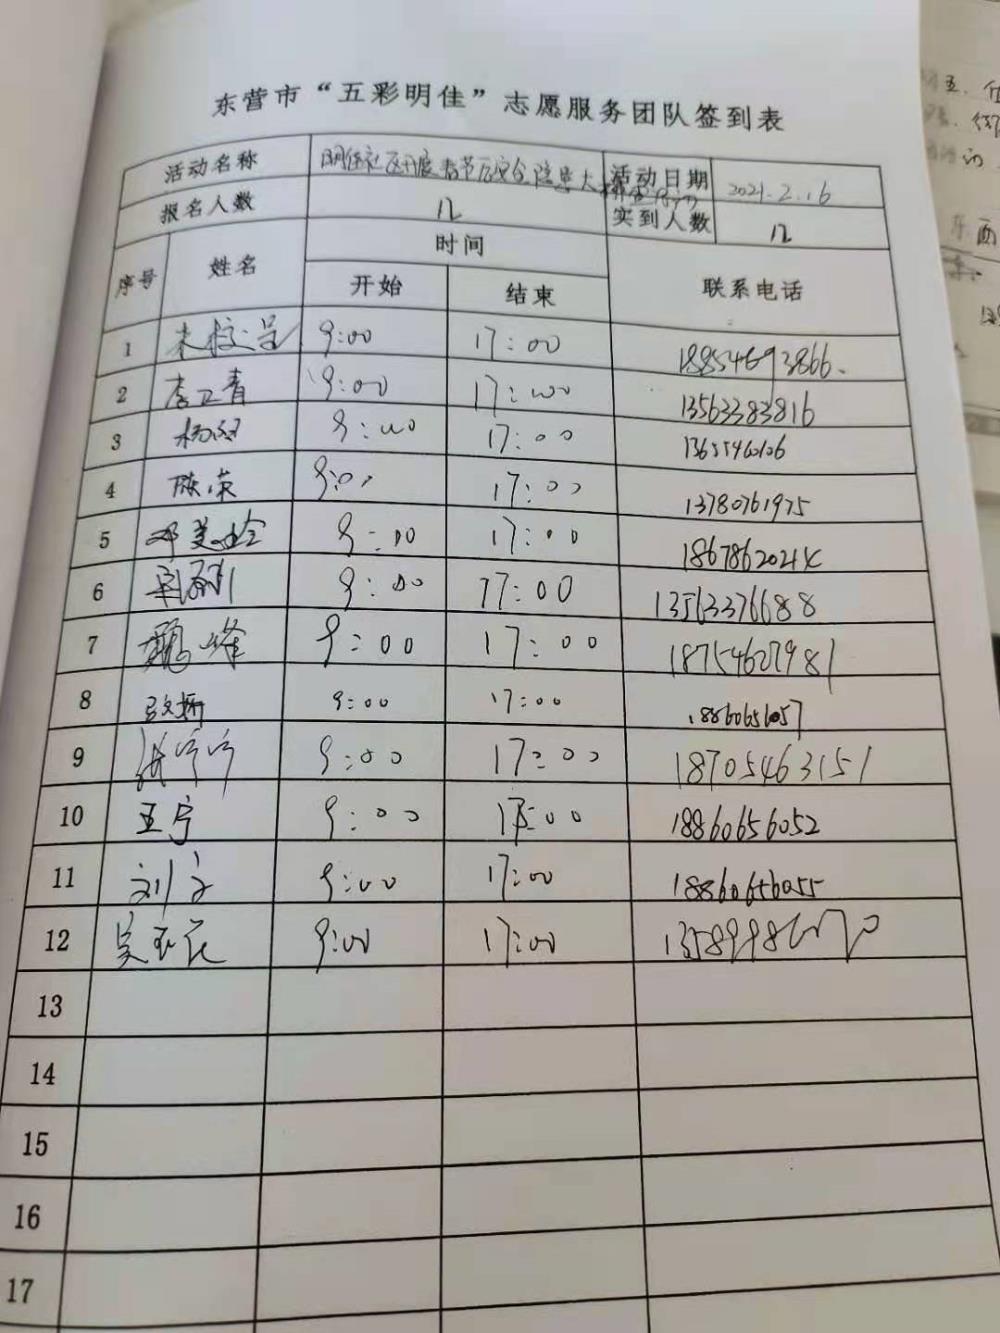 东营市“五彩明佳”志愿服务团队签到表
活动名称 明佳社区开展春节后安全隐患大排查 活动日期 2021.2.16
报名人数 12 实到人数 12
序号 姓名 时间 联系电话
开始 结束
1 9:00 17:00 18854693866
2 李卫青 9:00 17:00 13563383816
3 9:00 17:00
4 陈荣 9:00 17:00 13780761975
5 邓美玲 9:00 17:00
6 9:00 17:00 13563376688
7 9:00 17:00 18754627981
8 9:00 17:00 18860656057
9 张宁宁 9:00 17:00 18705463151
10 王宁 9:00 17:00 18860656052
11 刘文 9:00 17:00 18860656055
12 吴玉花 9:00 17:00
13
14
15
16
17